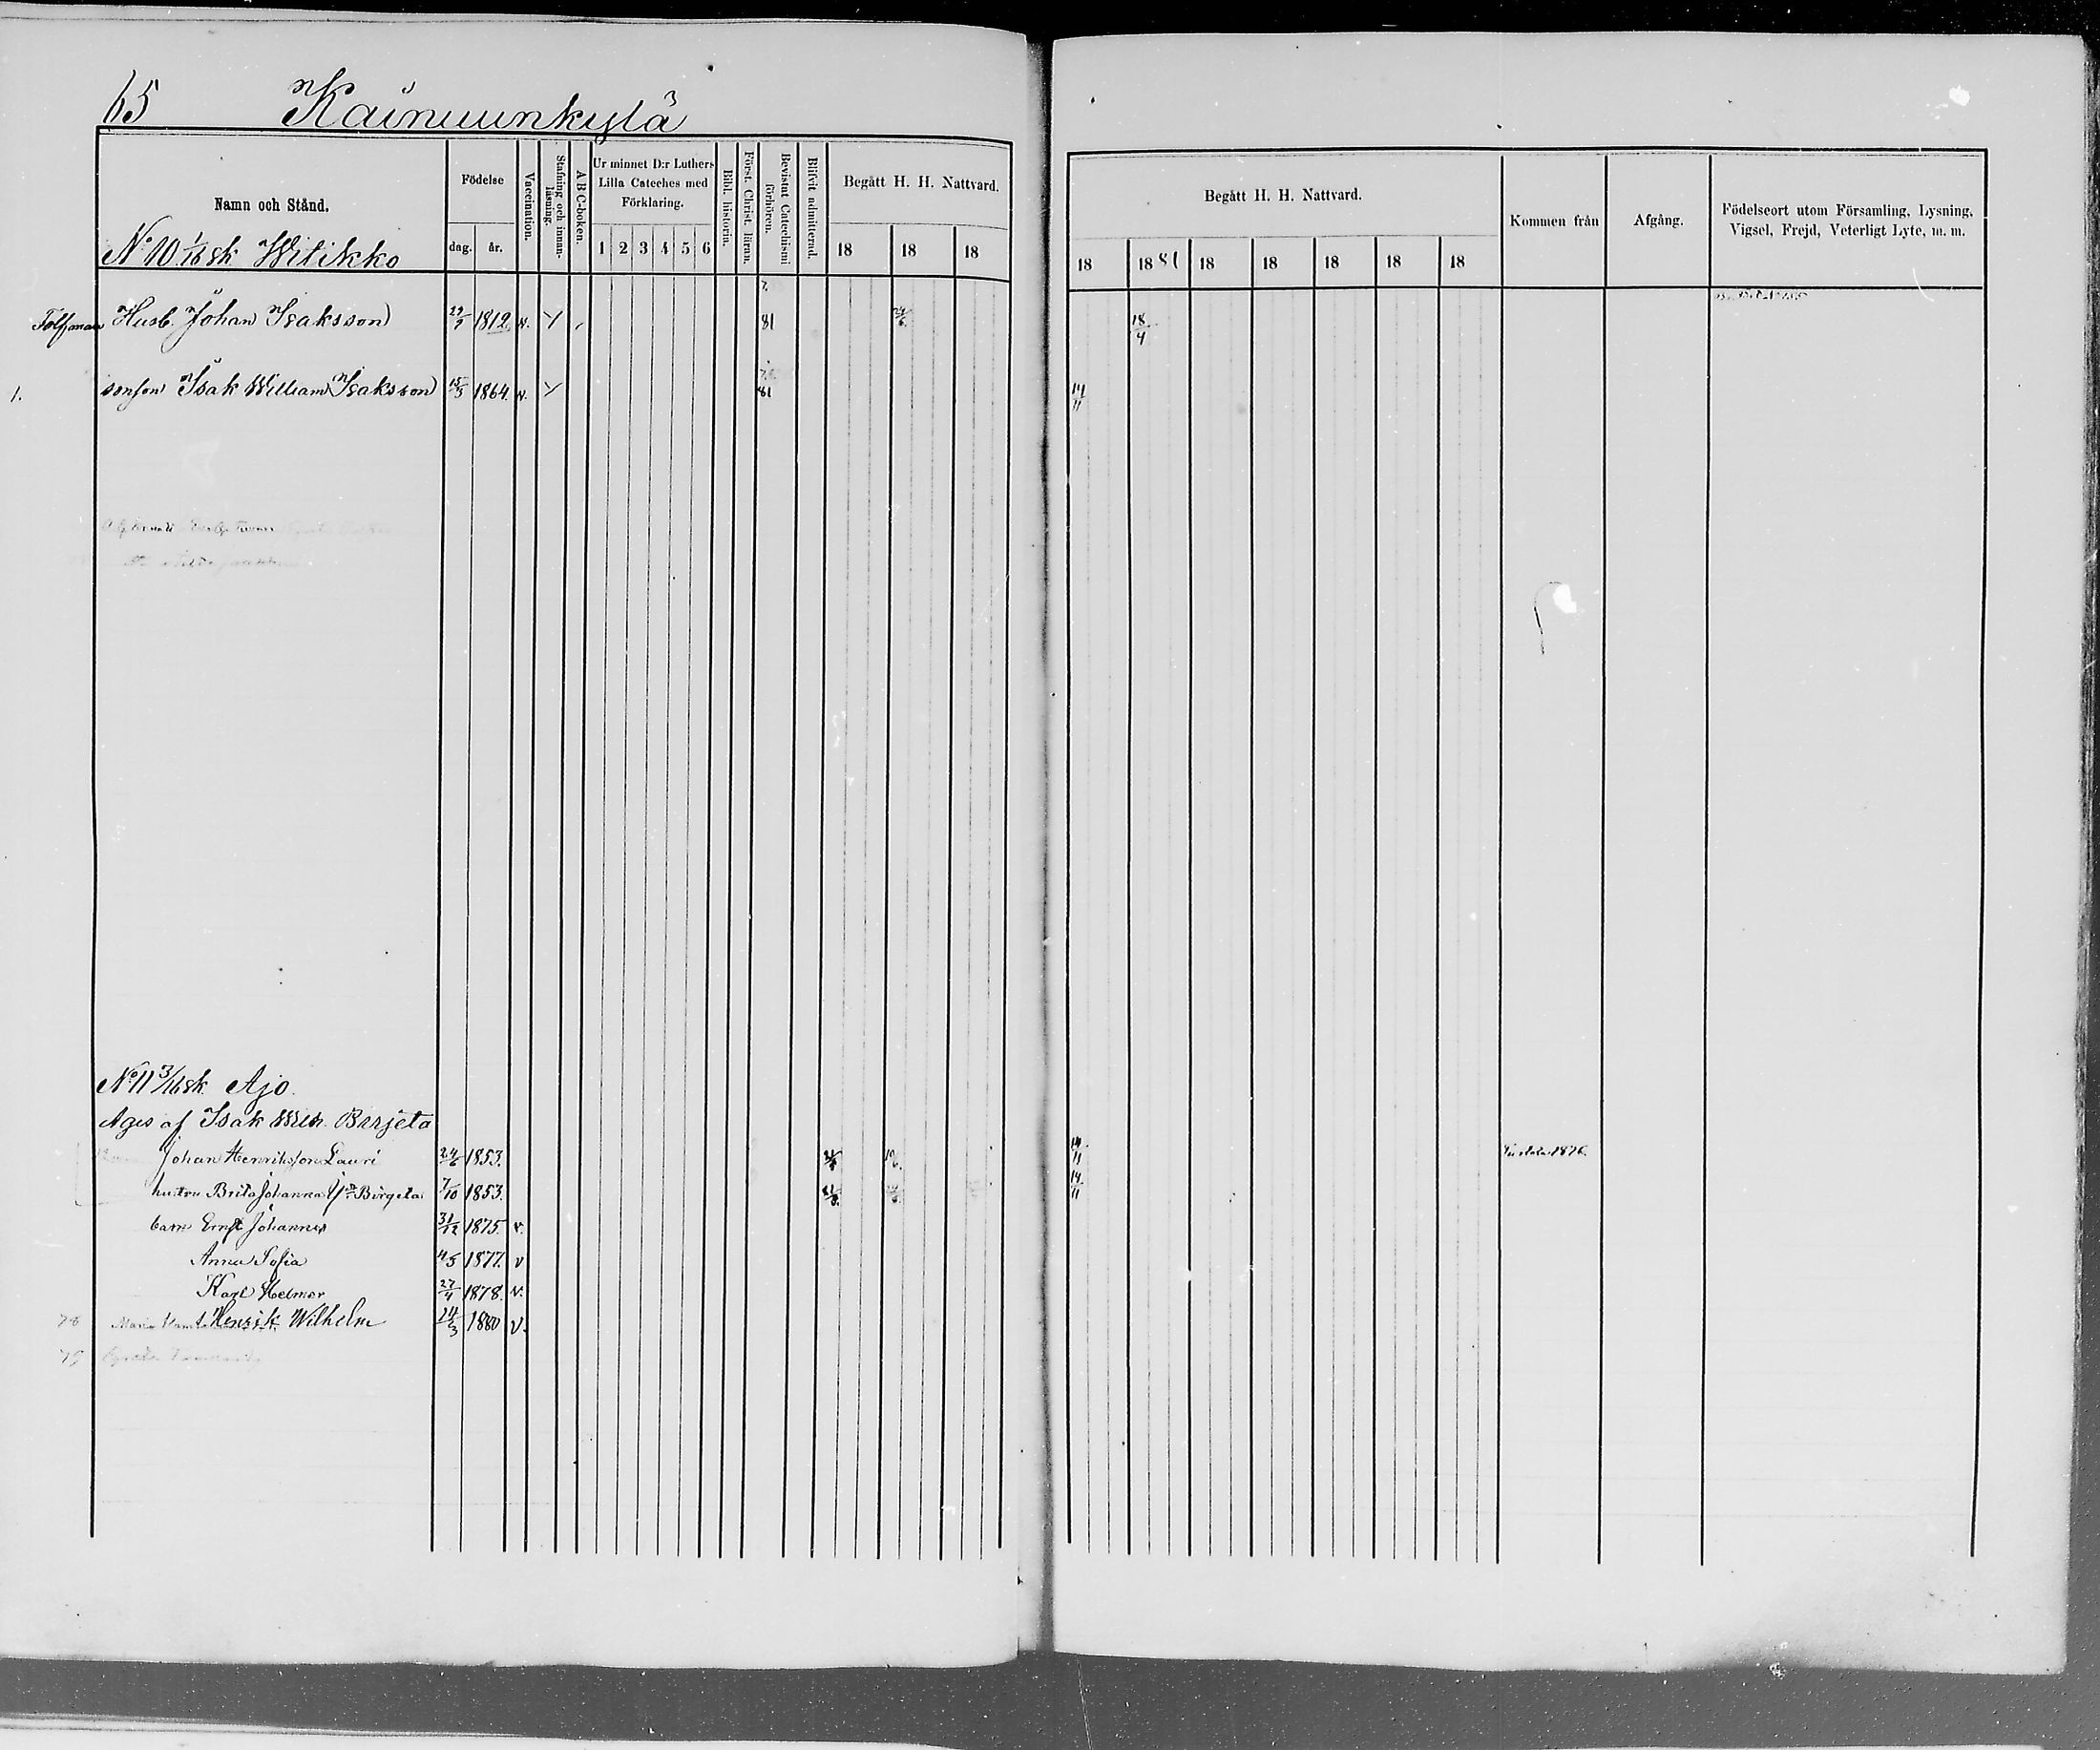 65 Kainuunkylä
Namn och Stånd. Födelse dag. år. Vaccination. Stafning och innanläsning. A B C-boken. Ur minnet D:r Luthers Lilla Cateches med Förklaring. 1 2 3 4 5 6 Bibl. historia. Först. Christ. läran. Bevistat Catechismi förhören. Blifvit admitterad. Begått H. H. Nattvard. 18 18 18
Begått H. H. Nattvard. 18 1881 18 18 18 18 18 Kommen från Afgång. Födelseort utom Församling, Lysning, Vigsel, Frejd, Veterligt Lyte, m. m.
No 10 1/16 sk Witikko
Husb. Johan Isaksson 1812 v. 81 18/4
1. sonson Isak William Isaksson 15/5 1864. v. 81 14/11
No 11 3/16 sk. Ajo.
Äges af Isak Wilh.
Johan Henriksson Lauri 24/6 1853. 14/11 1876.
hustru Brita Johanna 7/10 1853. 14/11
barn Ernst Johannes 31/12 1875. v.
Anna Sofia 4/5 1877. v
Karl Helmer 27/4 1878. v.
78 Henrik Wilhelm 24/3 1880 v.
79